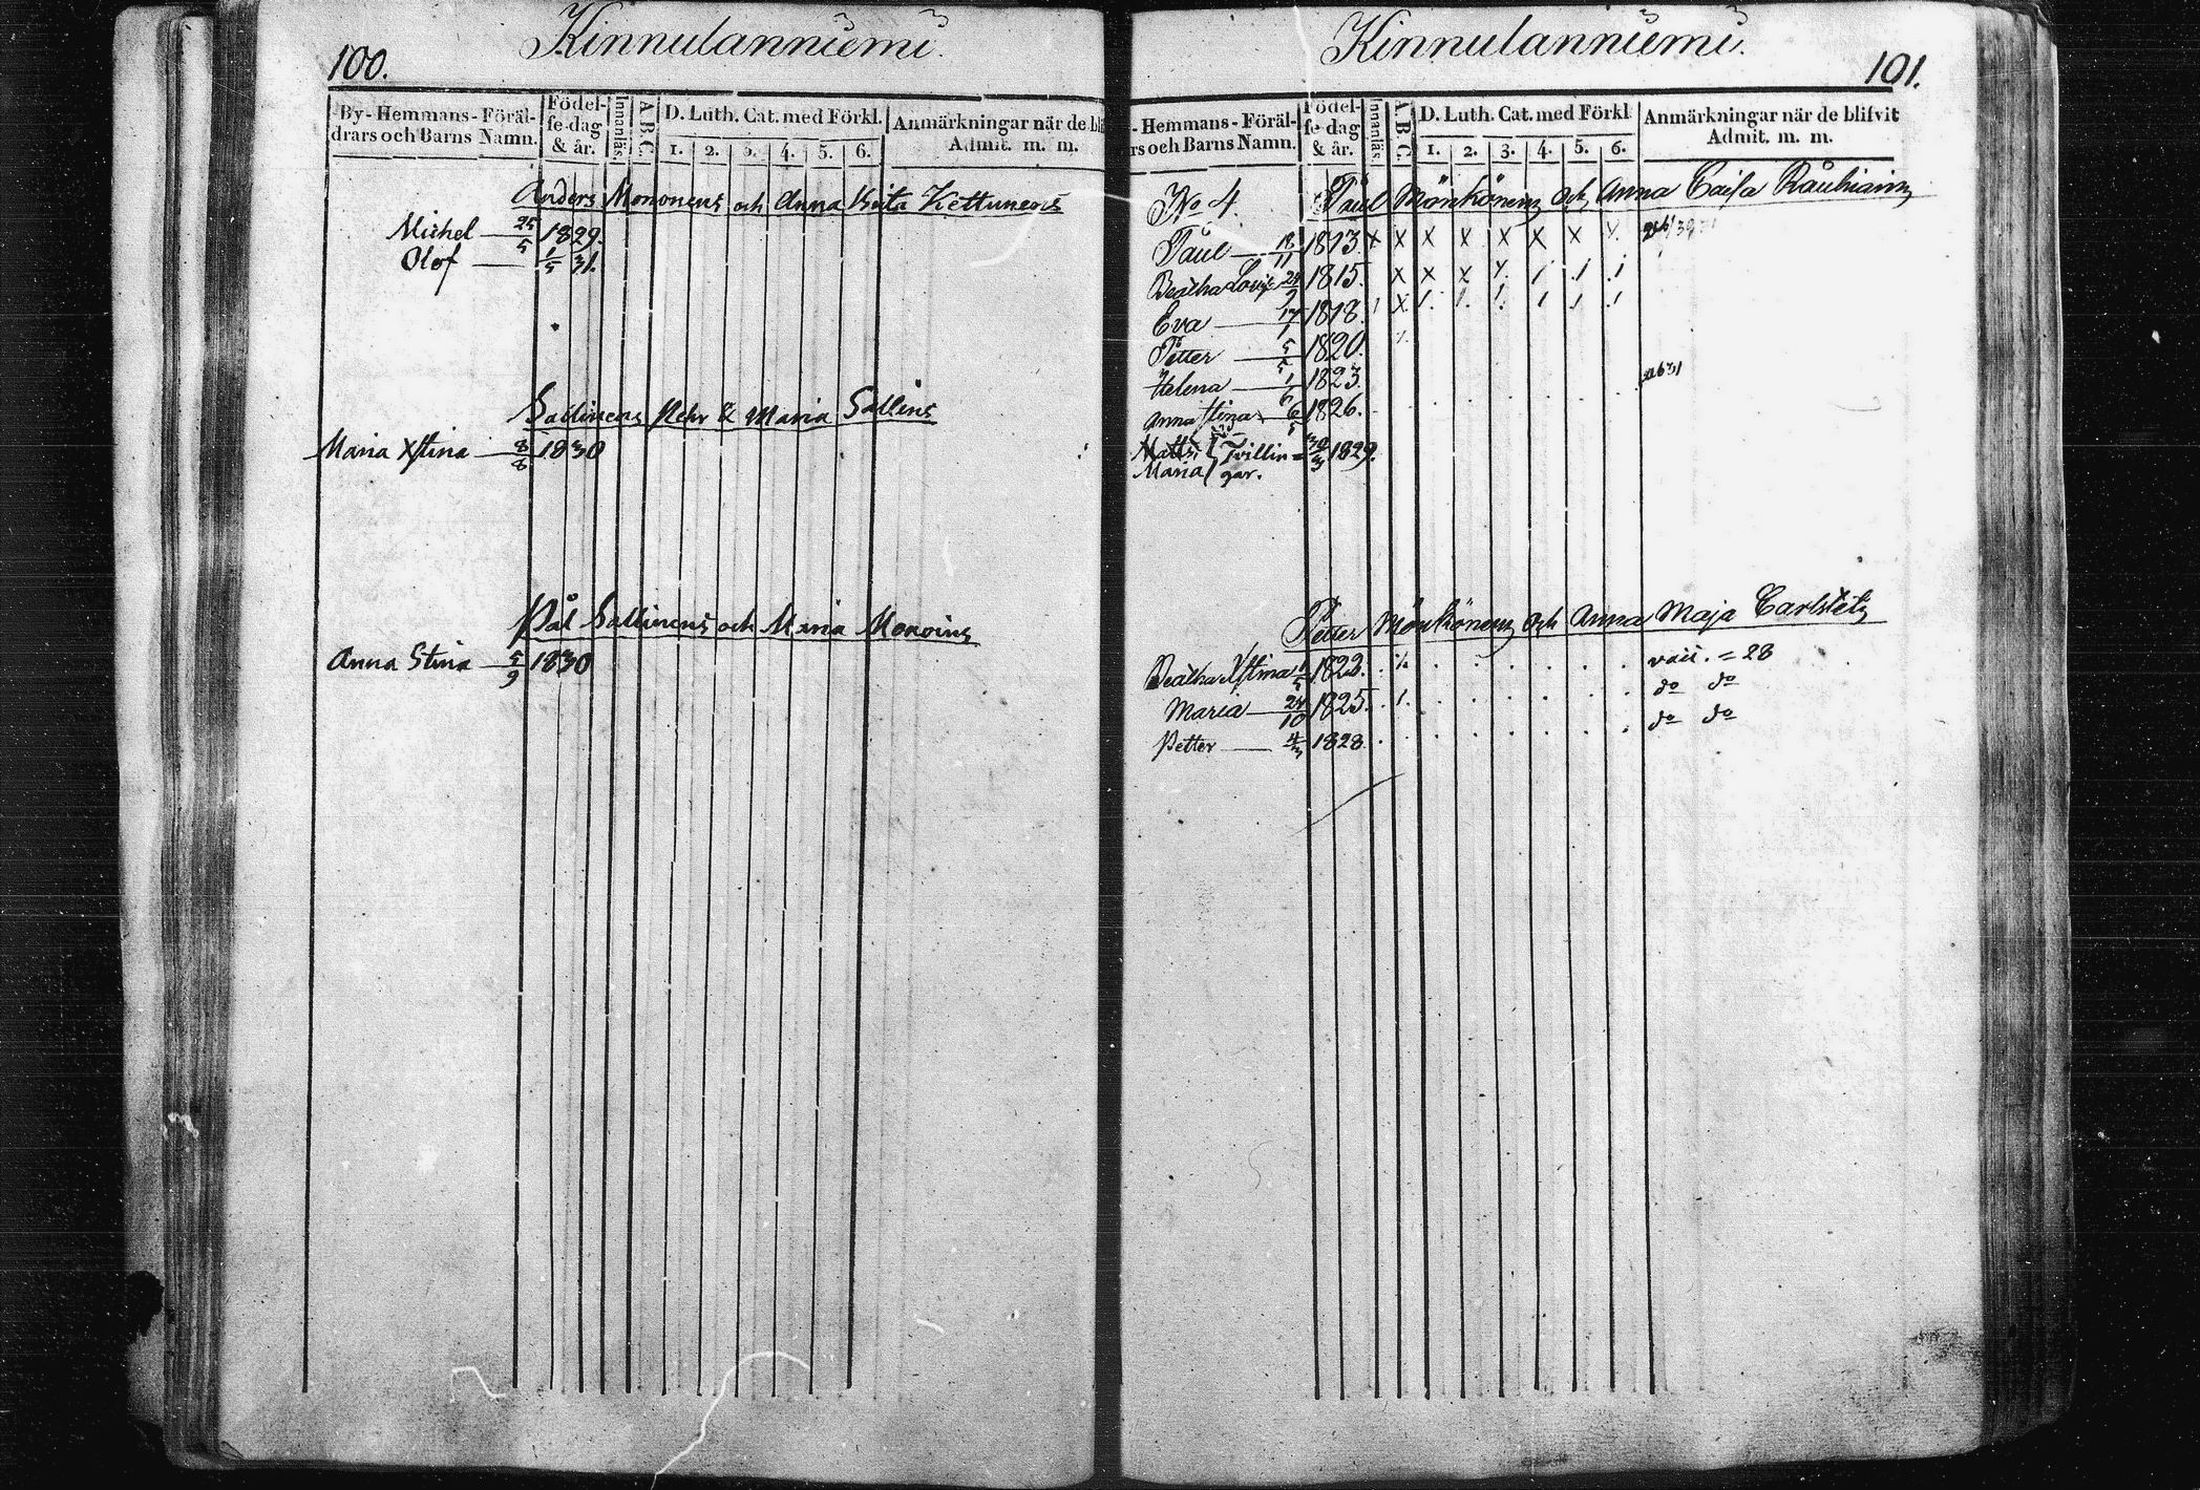 100.
Kinnulanniemi.
By-Hemmans-Föräl-
drars och Barns Namn.
Födel-
se-dag
& år.
Innanläs.
A.B.C.
D. Luth. Cat. med Förkl.
1. 2. 3. 4. 5. 6.
Anmärkningar när de bli
Admit. m. m.
Anders Mononens och Anna Brita Kettunens
Michel 25/5 1829.
Olof 1/5 31.
Sallinens Pehr & Maria Sallins
Maria Xstina 8/8 1830
Pål Sallinens och Maria Monoins
Anna Stina 5/9 1830
Kinnulanniemi.
101.
-Hemmans-Föräl-
rs och Barns Namn.
Födel-
se-dag
& år.
Innanläs.
A.B.C.
D. Luth. Cat. med Förkl.
1. 2. 3. 4. 5. 6.
Anmärkningar när de blifvit
Admit. m. m.
No 4. Paul Mönkönens och Anna Caisa
Paul 18/11 1813. x x x x x x x
Beatha Lovisa 24/9 1815. x x x
Eva 17/1 1818.
Petter 5/5 1820.
Helena 1/6 1823.
Anna Stina 6/5 1826.
Matts Tvillin= 30/3 1829.
Maria gar.
Petter Mönkönens och Anna Maja Carlstets
Beatha Xstina 1/5 1822. vacc. = 28
Maria 24/10 1825. do do
Petter 4/3 1828. do do